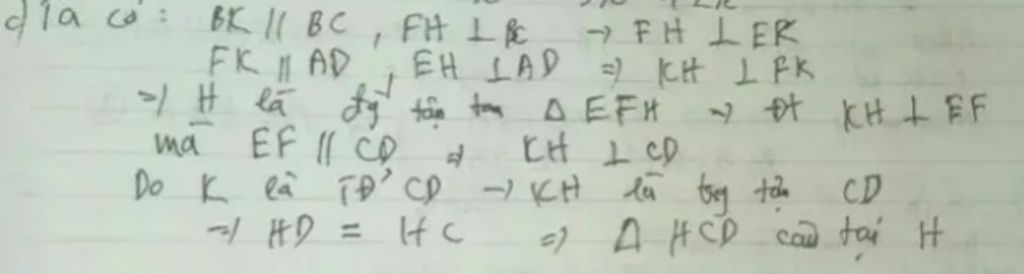 c) Ta có : BK // BC , FH ⊥ BC → FH ⊥ EK
FK // AD , EH ⊥ AD => KH ⊥ FK
=> H là tâm Δ EFH → Đt KH ⊥ EF
mà EF // CD => KH ⊥ CD
Do K là TĐ CD → KH là trg trực CD
=> HD = HC => Δ HCD cân tại H